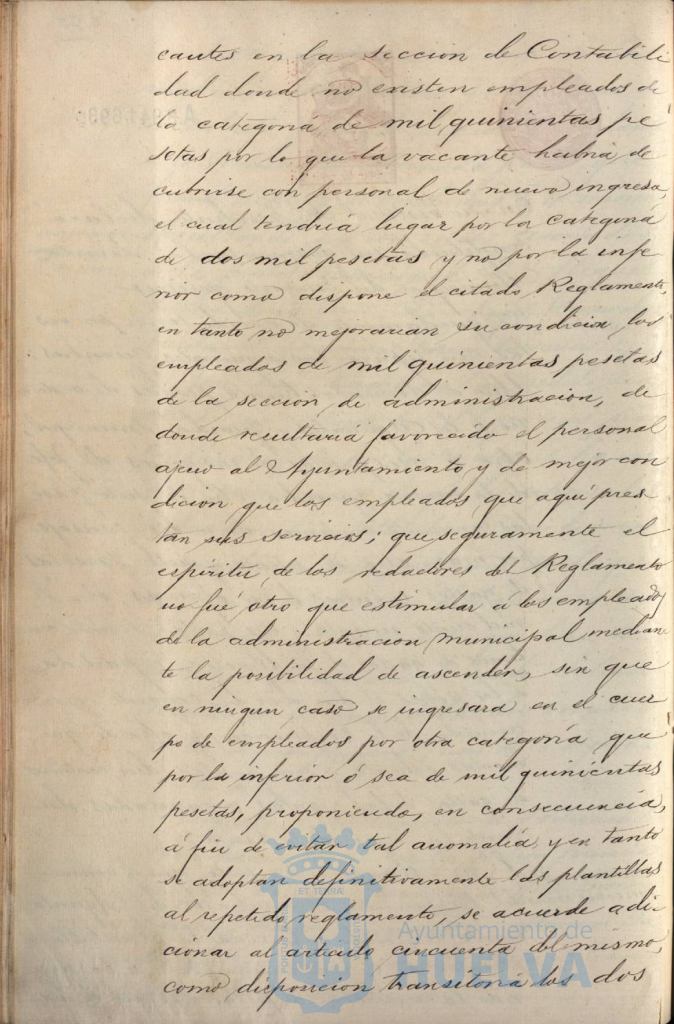 cantes en la seccion de Contabili
dad donde no existen empleados de
la categoriá de mil quinientas pe
setas por lo que la vacante habria de
cubrirse con personal de nuevo ingreso,
el cual tendria lugar por la categoriá
de dos mil pesetas y no por la infe
rior como dispone el citado Reglamento,
en tanto no mejorarian su condicion los
empleados de mil quinientas pesetas
de la seccion de administracion, de
donde resultariá favorecido el personal
ajeno al Ayuntamiento y de mejor con
dicion que los empleados que aquí pres
tan sus servicios; que seguramente el
espíritu de los redactores del Reglamento
no fué otro que estimular á los empleados
de la administracion municipal median
te la posibilidad de ascender, sin que
en ningun caso se ingresara en el cuer
po de empleados por otra categoría que
por la inferior ó sea de mil quinientas
pesetas, proponiendo, en consecuencia,
á fin de evitar tal anomalía y en tanto
se adoptan definitivamente las plantillas
al repetido reglamento, se acuerde adi-
cionar al artículo cincuenta del mismo,
como disposicion transitoria los dos
Ayuntamiento de
HUELVA